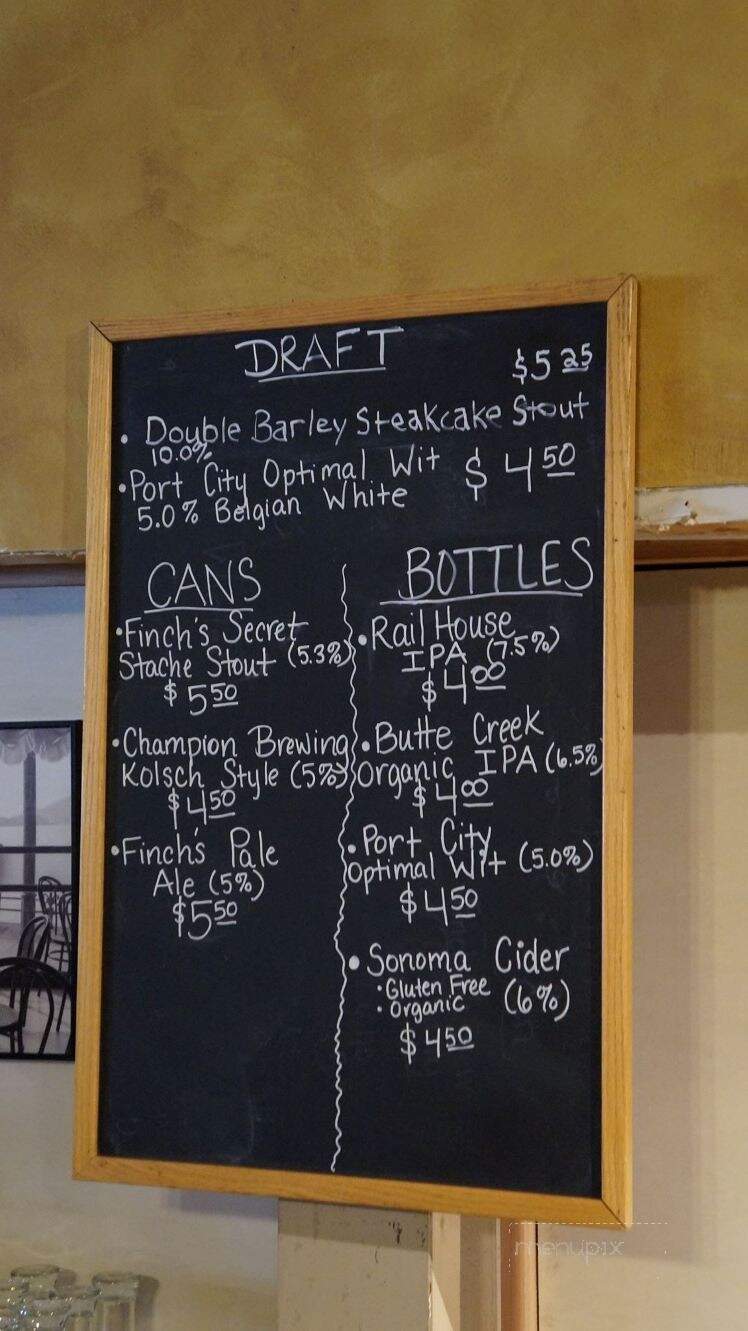 DRAFT
$5 25
• Double Barley Steakcake Stout
10.0%
• Port City Optimal Wit $ 4 50
5.0% Belgian White
CANS
• Finch's Secret
Stache Stout (5.3%)
$ 5 50
• Champion Brewing
Kolsch Style (5%)
$ 4 50
• Finch's Pale
Ale (5%)
$5 50
BOTTLES
• Rail House
IPA (7.5%)
$ 4 00
• Butte Creek
Organic IPA (6.5%)
$ 4 00
• Port City
Optimal Wit (5.0%)
$ 4 50
• Sonoma Cider
• Gluten Free (6%)
• Organic
$ 4 50
menupix